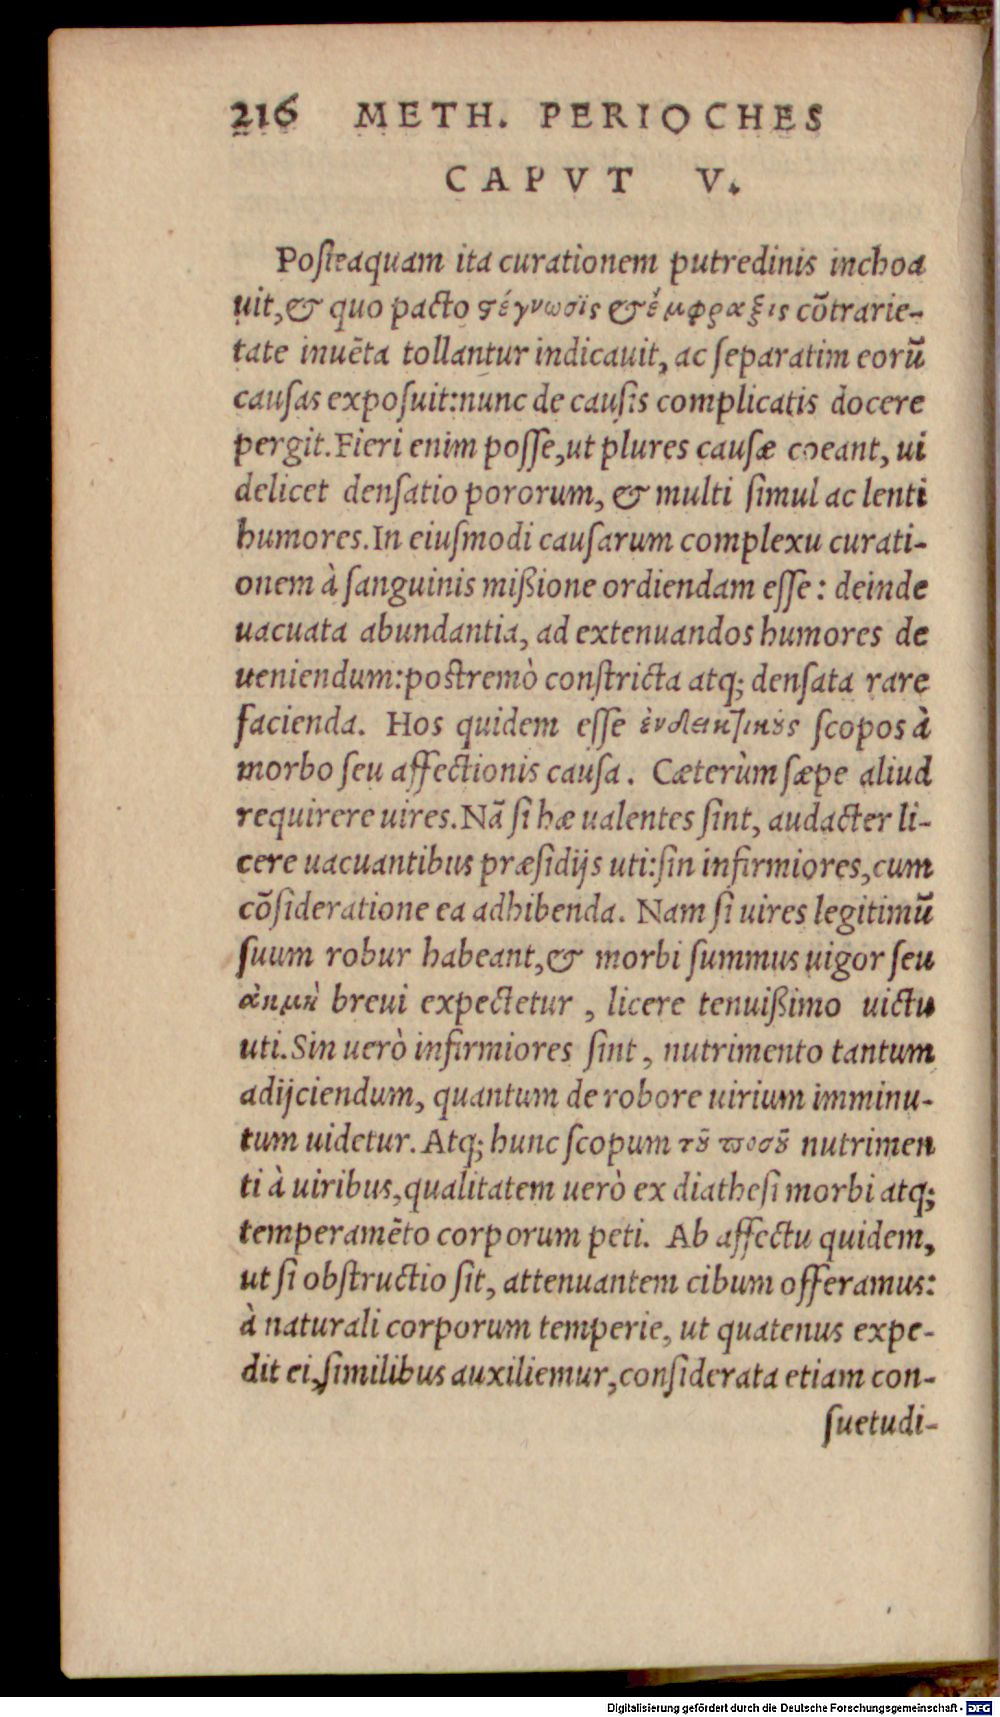 216 METH. PERIOCHES
CAPVT V.
Posteaquam ita curationem putredinis inchoa
uit, & quo pacto στέγνωσϊς & ἔμφραξις cõtrarie-
tate inuẽta tollantur indicauit, ac separatim eorũ
causas exposuit: nunc de causis complicatis docere
pergit. Fieri enim posse, ut plures causæ coeant, ui
delicet densatio pororum, & multi simul ac lenti
humores. In eiusmodi causarum complexu curati-
onem à sanguinis mißione ordiendam esse: deinde
uacuata abundantia, ad extenuandos humores de
ueniendum: postremò constricta atq; densata rare
facienda. Hos quidem esse ἐνδεικτικοὺς scopos à
morbo seu affectionis causa. Cæterùm sæpe aliud
requirere uires. Nã si hæ ualentes sint, audacter li-
cere uacuantibus præsidijs uti: sin infirmiores, cum
cõsideratione ea adhibenda. Nam si uires legitimũ
suum robur habeant, & morbi summus uigor seu
ἀκμὴ breui expectetur, licere tenuißimo uictu
uti. Sin uerò infirmiores sint, nutrimento tantum
adijciendum, quantum de robore uirium imminu-
tum uidetur. Atq; hunc scopum τοῦ ποσοῦ nutrimen
ti à uiribus, qualitatem uerò ex diathesi morbi atq;
temperamẽto corporum peti. Ab affectu quidem,
ut si obstructio sit, attenuantem cibum offeramus:
à naturali corporum temperie, ut quatenus expe-
dit ei, similibus auxiliemur, considerata etiam con-
suetudi-
Digitalisierung gefördert durch die Deutsche Forschungsgemeinschaft - DFG